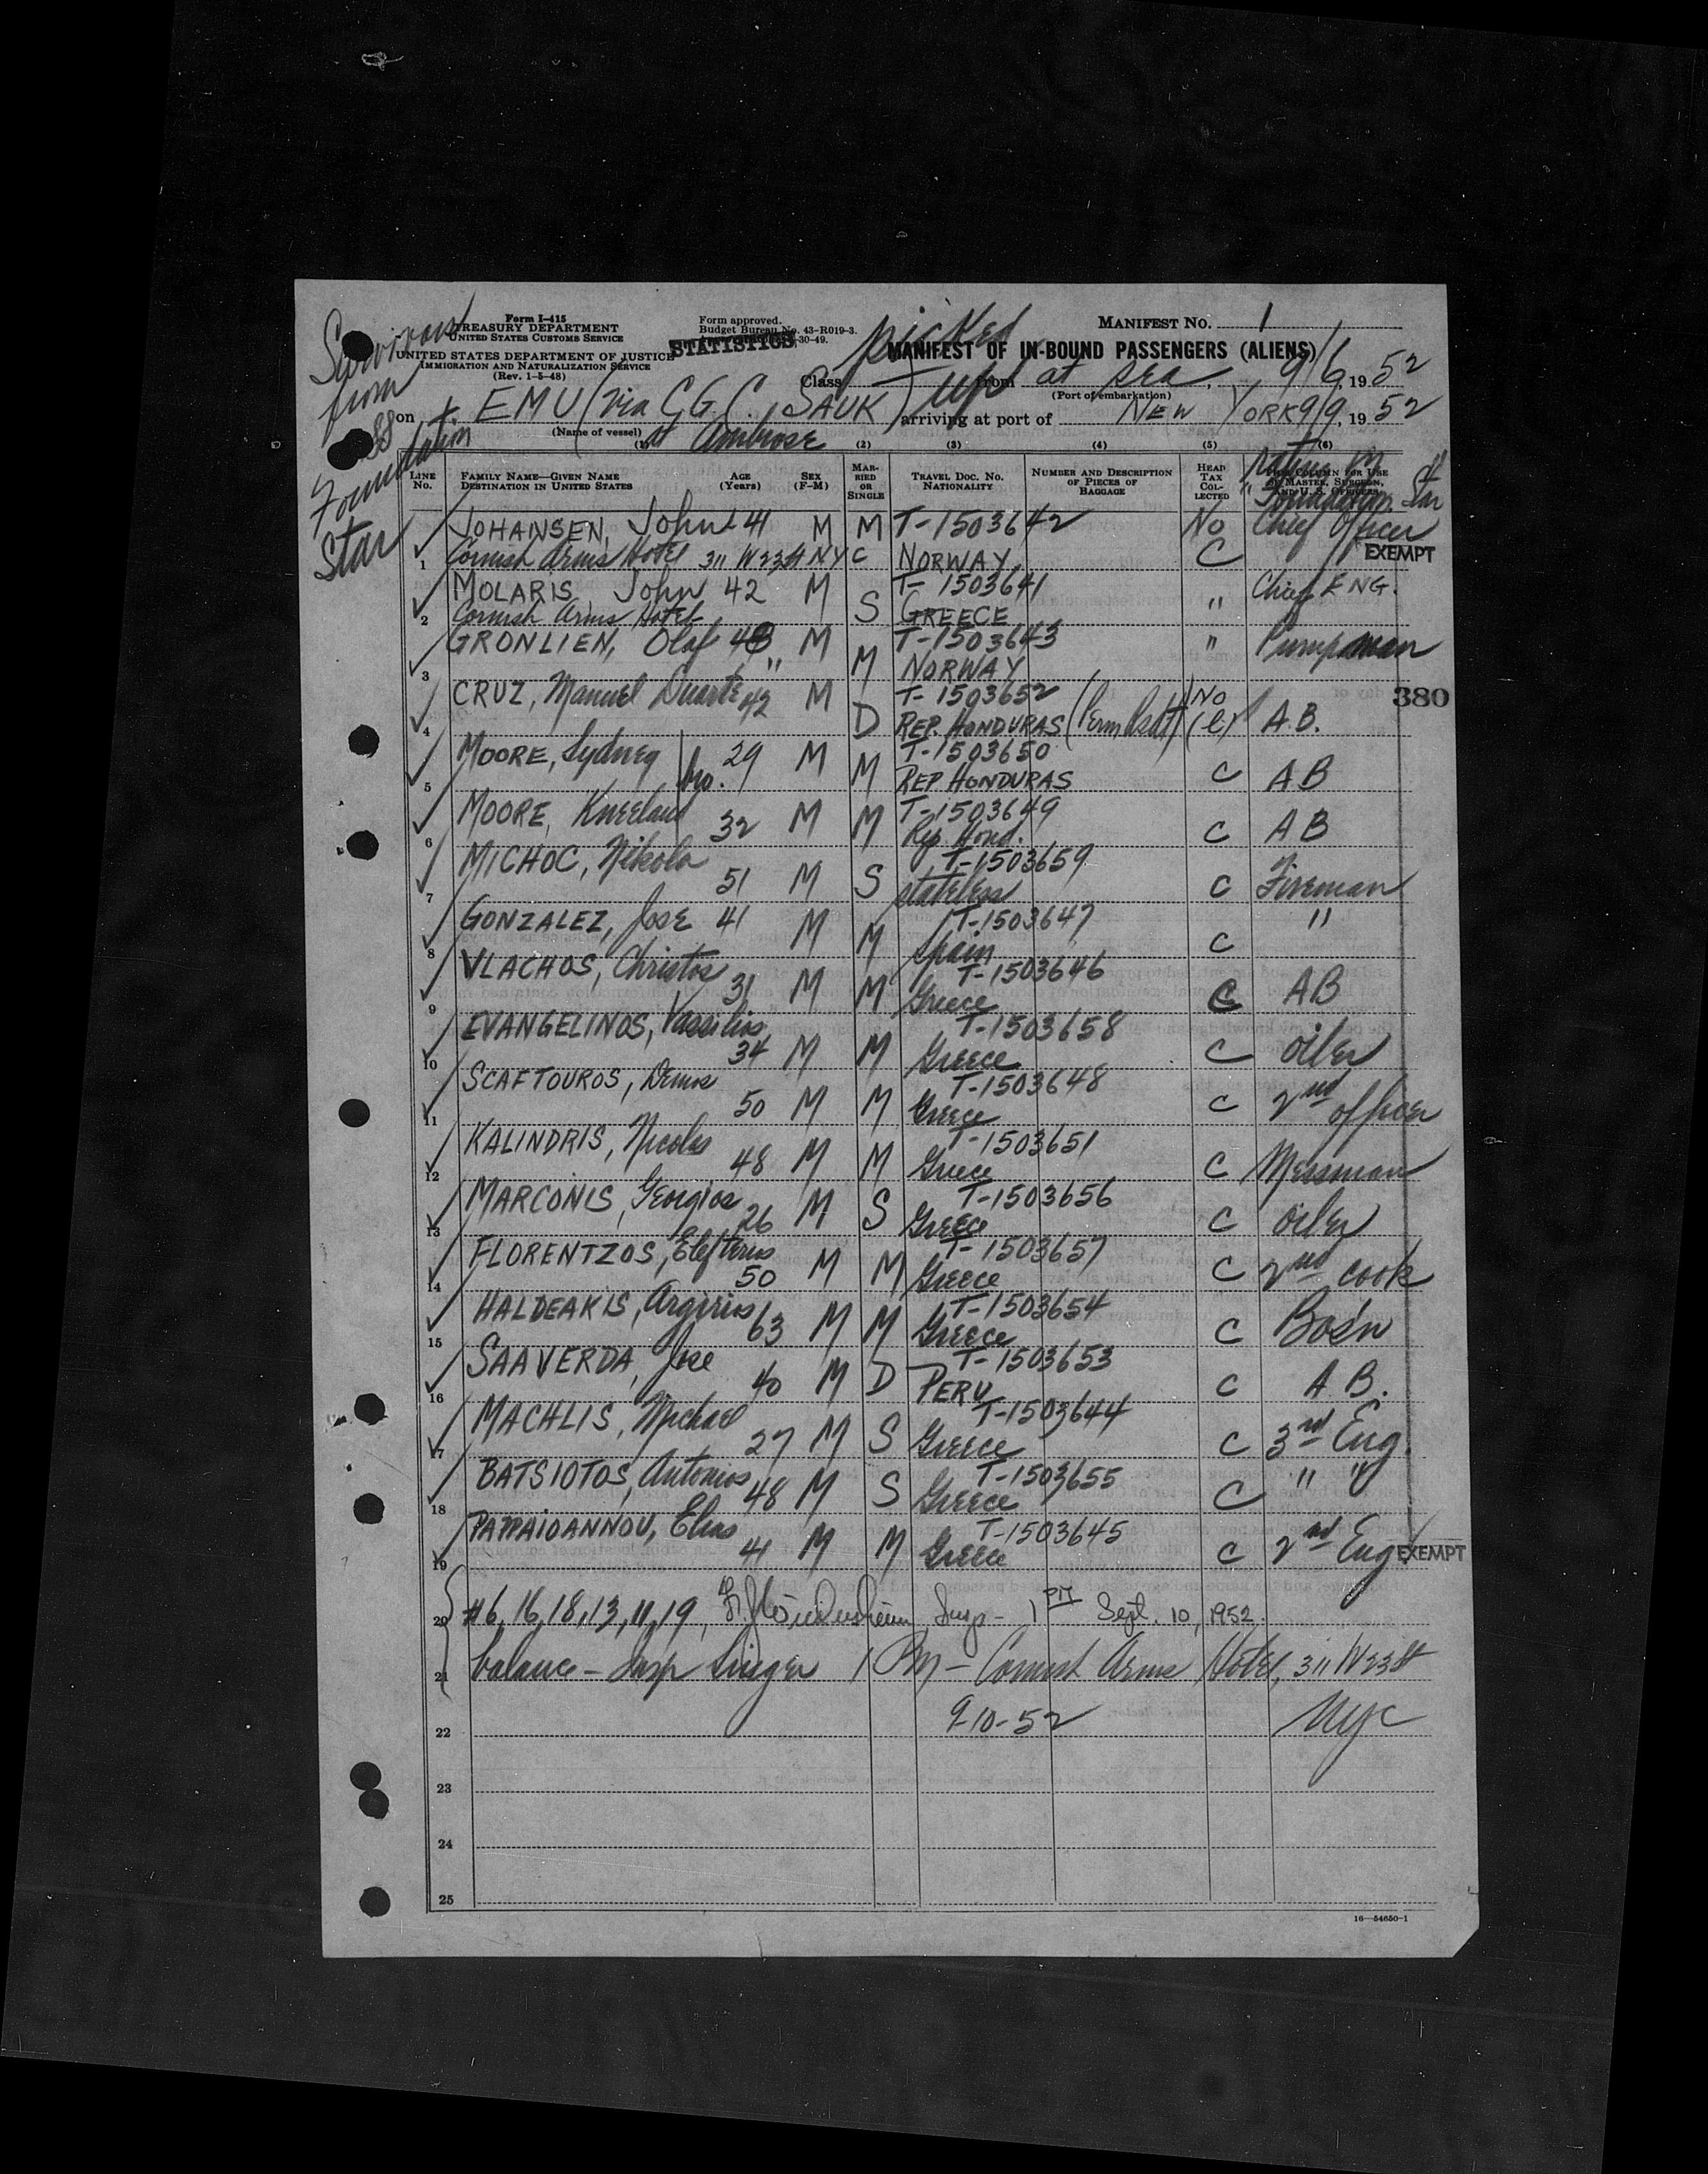 Survivors
from
SS
Foundation
Star
Form I-415
TREASURY DEPARTMENT
UNITED STATES CUSTOMS SERVICE
UNITED STATES DEPARTMENT OF JUSTICE
IMMIGRATION AND NATURALIZATION SERVICE
(Rev. 1-5-48)
Form approved.
Budget Bureau No. 43-R019-3.
30-49.
STATISTICS
MANIFEST NO. 1
MANIFEST OF IN-BOUND PASSENGERS (ALIENS)
Class picked up from at sea, 9/6, 1952
(Port of embarkation)
on EMU (via C.G.C. SAUK) arriving at port of NEW YORK 9/9, 1952
(Name of vessel) at Ambrose
(1) (2) (3) (4) (5) (6)
LINE No. FAMILY NAME—GIVEN NAME DESTINATION IN UNITED STATES AGE (Years) SEX (F-M) MARRIED OR SINGLE TRAVEL DOC. NO. NATIONALITY NUMBER AND DESCRIPTION OF PIECES OF BAGGAGE HEAD TAX COLLECTED THIS COLUMN FOR USE OF MASTER, SURGEON, AND U. S. OFFICERS
Foundation Star
JOHANSEN, John 41 M M T-1503642 No Chief Officer
1 Cornish Arms Hotel 311 W 23 St NYC NORWAY C EXEMPT
MOLARIS, John 42 M T-1503641 Chief ENG.
2 Cornish Arms Hotel S GREECE "
GRONLIEN, Olaf 48 M T-1503643 " Pumpman
3 " M NORWAY
CRUZ, Manuel Duarte 42 M T-1503652 No 380
4 D REP. HONDURAS (C) A.B.
MOORE, Sydney bro. 29 M T-1503650
5 M REP HONDURAS C AB
MOORE, Kneeland 32 M M T-1503649
6 Rep Hond. C AB
MICHOC, Nikola T-1503659
7 51 M S stateless C Fireman
GONZALEZ, Jose 41 M M T-1503647 "
8 Spain C
VLACHOS, Christos T-1503646
9 31 M M Greece C AB
EVANGELINOS, Vassilios T-1503658
10 34 M M Greece C oiler
SCAFTOUROS, Demos T-1503648
11 50 M M Greece C 2nd officer
KALINDRIS, Nicolas T-1503651
12 48 M M Greece C Messman
MARCONIS, Georgios T-1503656
13 26 M S Greece C oiler
FLORENTZOS, Elefterios T-1503657
14 50 M M Greece C 2nd cook
HALDEAKIS, Argirios T-1503654
15 63 M M Greece C Bos'n
SAAVERDA, Jose T-1503653
16 40 M D PERU C A.B.
MACHLIS, Michael T-1503644
17 27 M S Greece C 3rd Eng.
BATSIOTOS, Antonios T-1503655
18 48 M S Greece C " "
PAPPAIOANNOU, Elias T-1503645
19 41 M M Greece C 2nd Eng EXEMPT
20 #6, 16, 18, 13, 11, 19, Insp- 1 PM Sept. 10, 1952.
21 balance - Insp Singer 1 PM - Cornish Arms Hotel, 311 W 23 St
22 9-10-52 NYC
23
24
25
16—54650-1